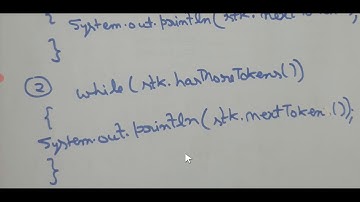 { System.out.println(stk.next
}
② while(stk.hasMoreTokens())
{
System.out.println(stk.nextToken());
}